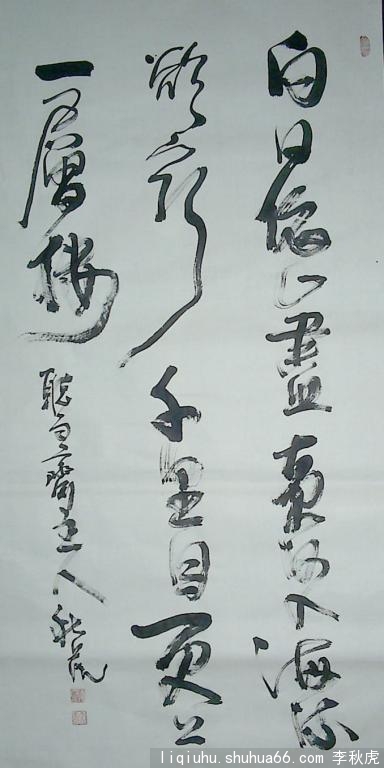 白日依山盡黃河入海流
欲窮千里目更上
一層樓
聽齋主人秋虎
liqiuhu.shuhua66.com 李秋虎